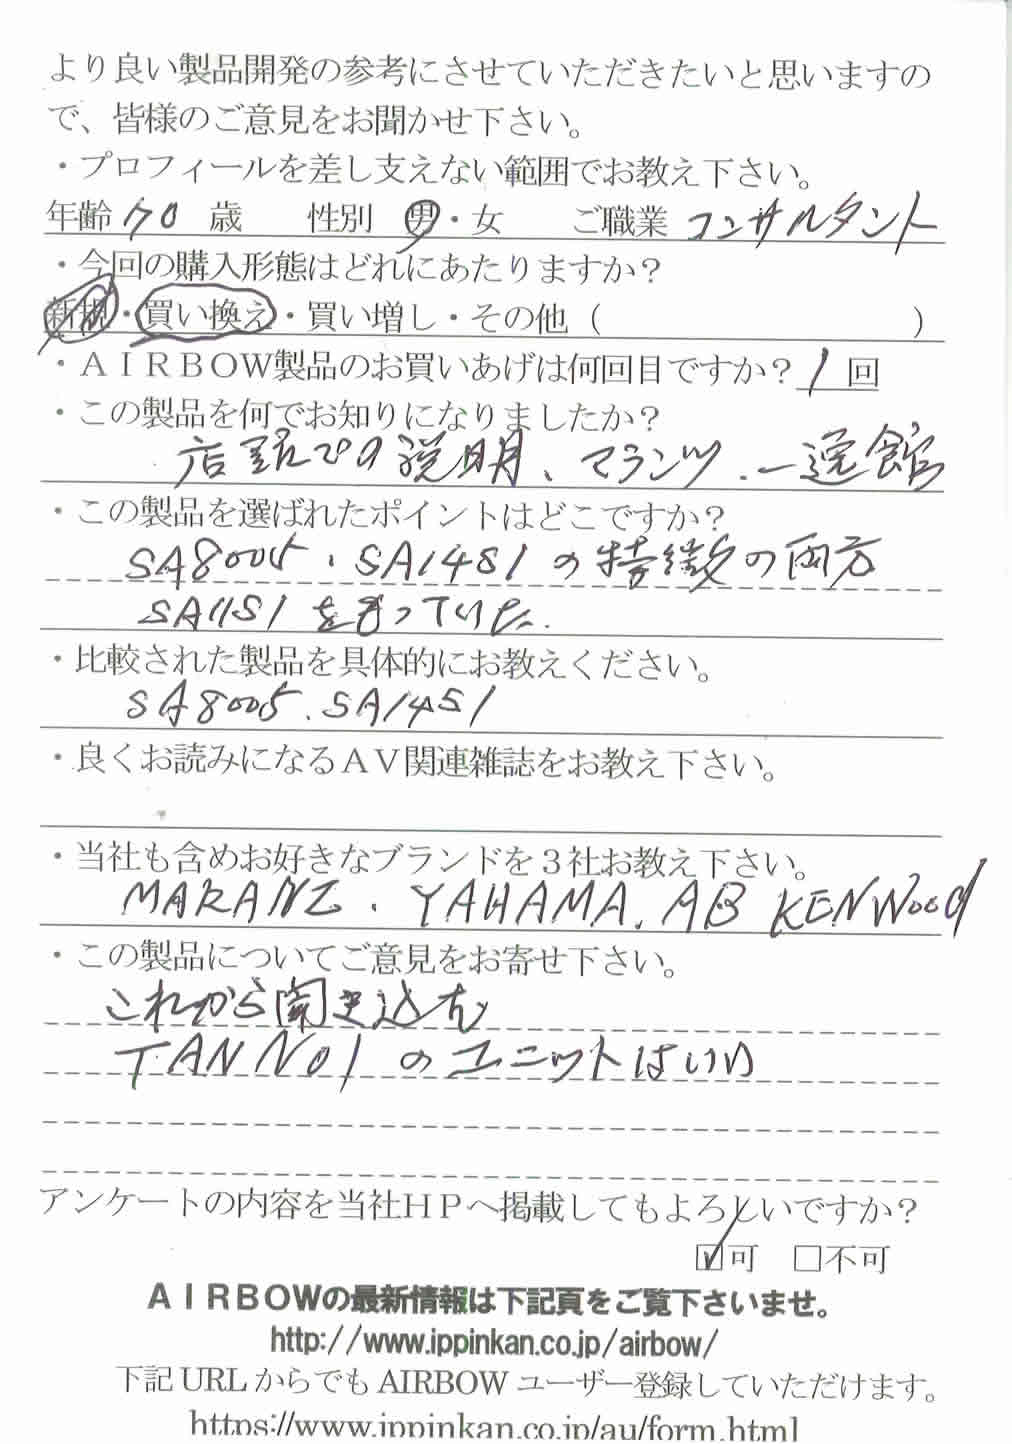 より良い製品開発の参考にさせていただきたいと思いますの
で、皆様のご意見をお聞かせ下さい。
・プロフィールを差し支えない範囲でお教え下さい。
年齢 70 歳 性別 男・女 ご職業 コンサルタント
・今回の購入形態はどれにあたりますか？
新規・買い換え・買い増し・その他（ ）
・ＡＩＲＢＯＷ製品のお買いあげは何回目ですか？ 1 回
・この製品を何でお知りになりましたか？
店頭での説明、マランツ、一逸館
・この製品を選ばれたポイントはどこですか？
SA8005、SA14S1の特徴の両方
SA11S1をもっていた.
・比較された製品を具体的にお教えください。
SA8005.SA14S1
・良くお読みになるＡＶ関連雑誌をお教え下さい。
・当社も含めお好きなブランドを３社お教え下さい。
MARANZ、YAHAMA、AB KENWOOD
・この製品についてご意見をお寄せ下さい。
これから聞き込む
TANNOIのユニットはいい
アンケートの内容を当社ＨＰへ掲載してもよろしいですか？
☑可 □不可
ＡＩＲＢＯＷの最新情報は下記頁をご覧下さいませ。
http://www.ippinkan.co.jp/airbow/
下記 URL からでも AIRBOW ユーザー登録していただけます。
https://www.ippinkan.co.jp/au/form.html